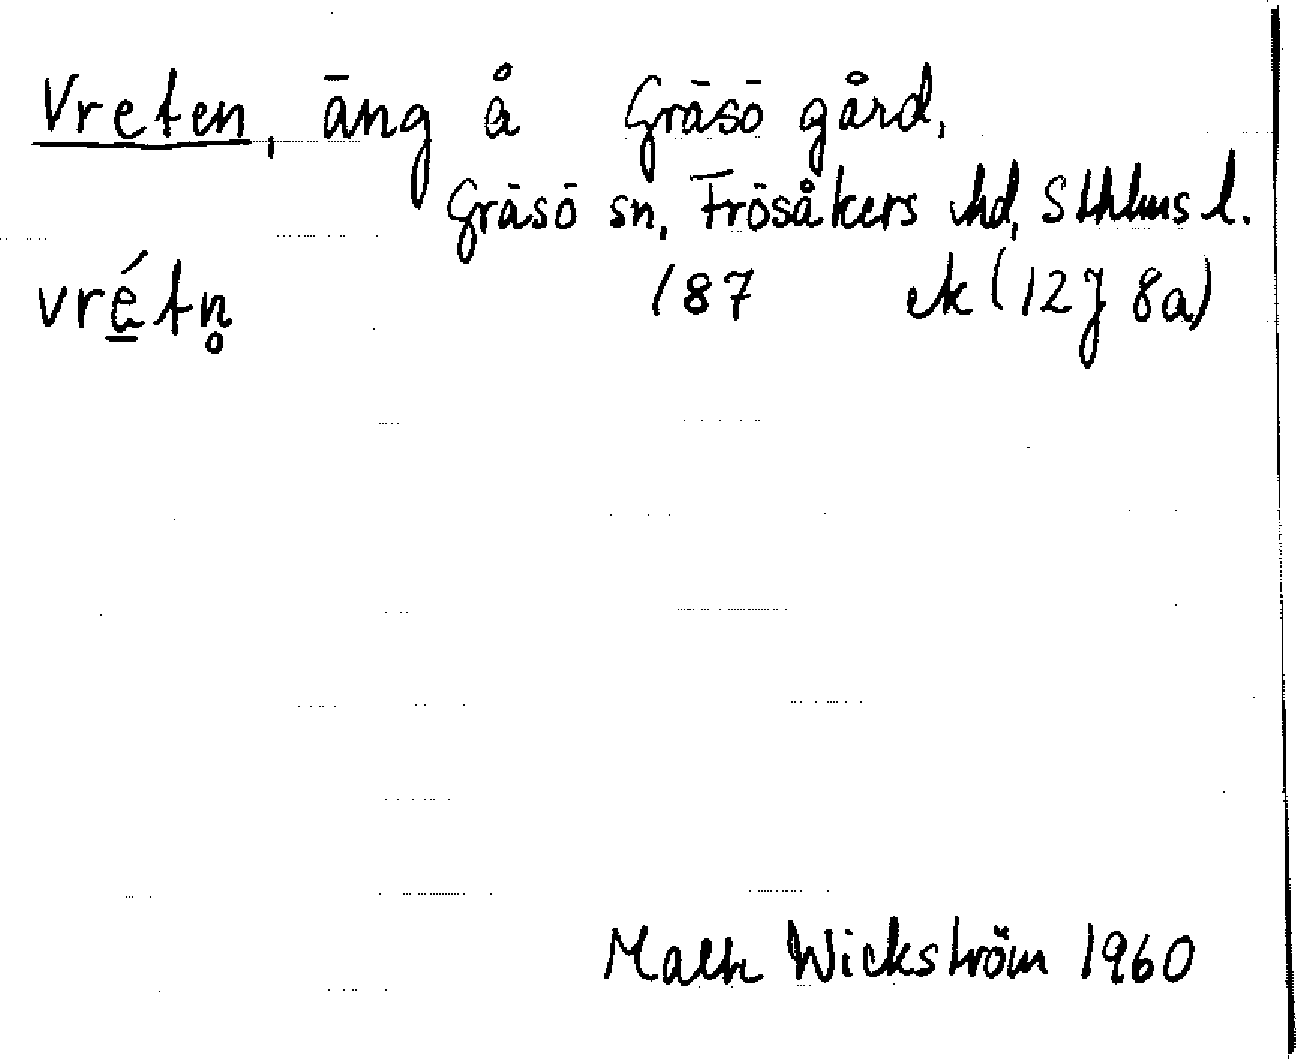 Vreten, äng å Gräsö gård,
Gräsö sn, Frösåkers hd, Sthlms l.
vré̲tn̥ 187 ek (12J 8a)
Wickström 1960